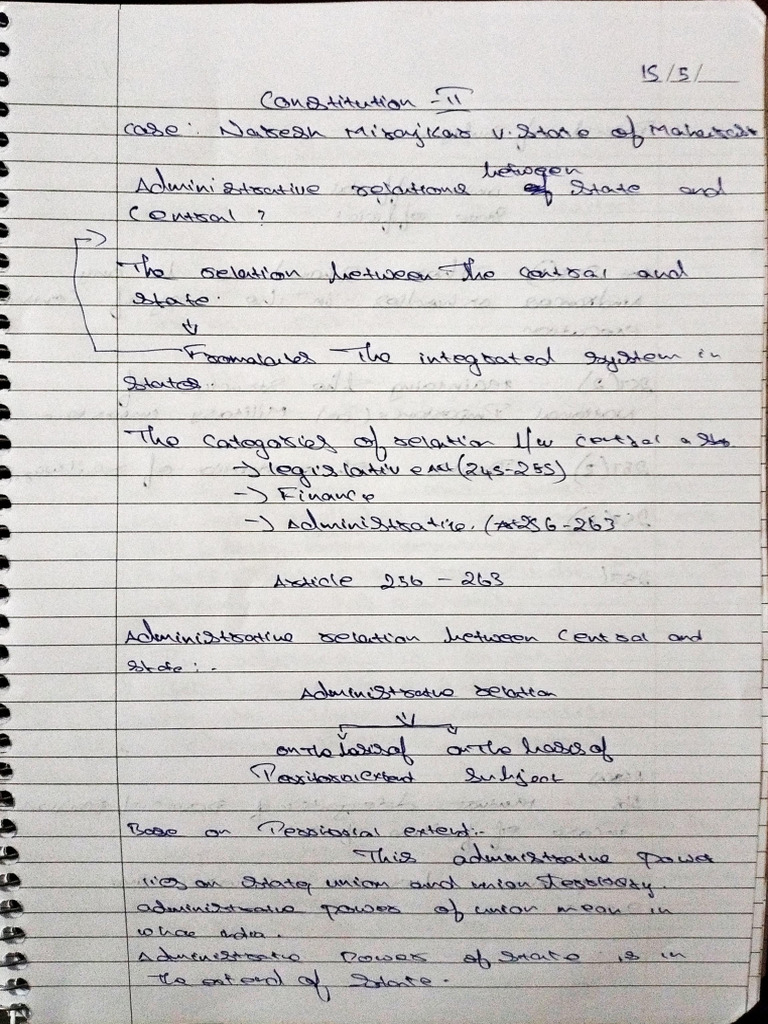 15/5/
Constitution - II
Case: Naresh Mirajkar v. State of
Administrative relations between State and
Central?
The relation between The central and
state.
The integrated system in
States
The Categories of relation b/w central
→ legislative (245-255)
→ Finance
→ Administrative. (256-263
Article 256 - 263
Administrative relation between Central and
State:-
Administrative relation
on The basis of on The basis of
Territorial extent Subject
Base on Territorial extent:-
This administrative power
lies on state, union and union territory.
administrative power of union mean in
whole india.
Administrative Power of State is in
The extend of State.